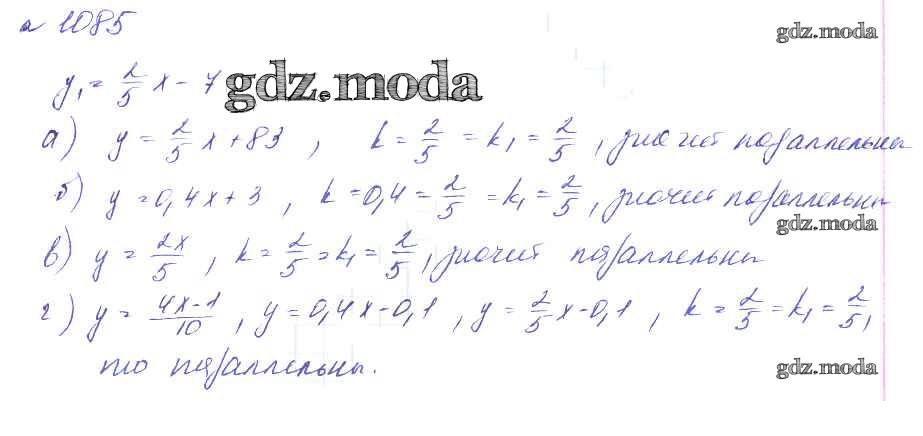 № 1085
gdz.moda
y₁ = 2/5 x - 7
gdz.moda
а) y = 2/5 x + 83 , k = 2/5 = k₁ = 2/5 , значит параллельны
б) y = 0,4x + 3 , k = 0,4 = 2/5 = k₁ = 2/5 , значит параллельны
gdz.moda
в) y = 2x/5 , k = 2/5 = k₁ = 2/5 , значит параллельны
г) y = 4x-1/10 , y = 0,4x - 0,1 , y = 2/5 x - 0,1 , k = 2/5 = k₁ = 2/5 ,
то параллельны.
gdz.moda